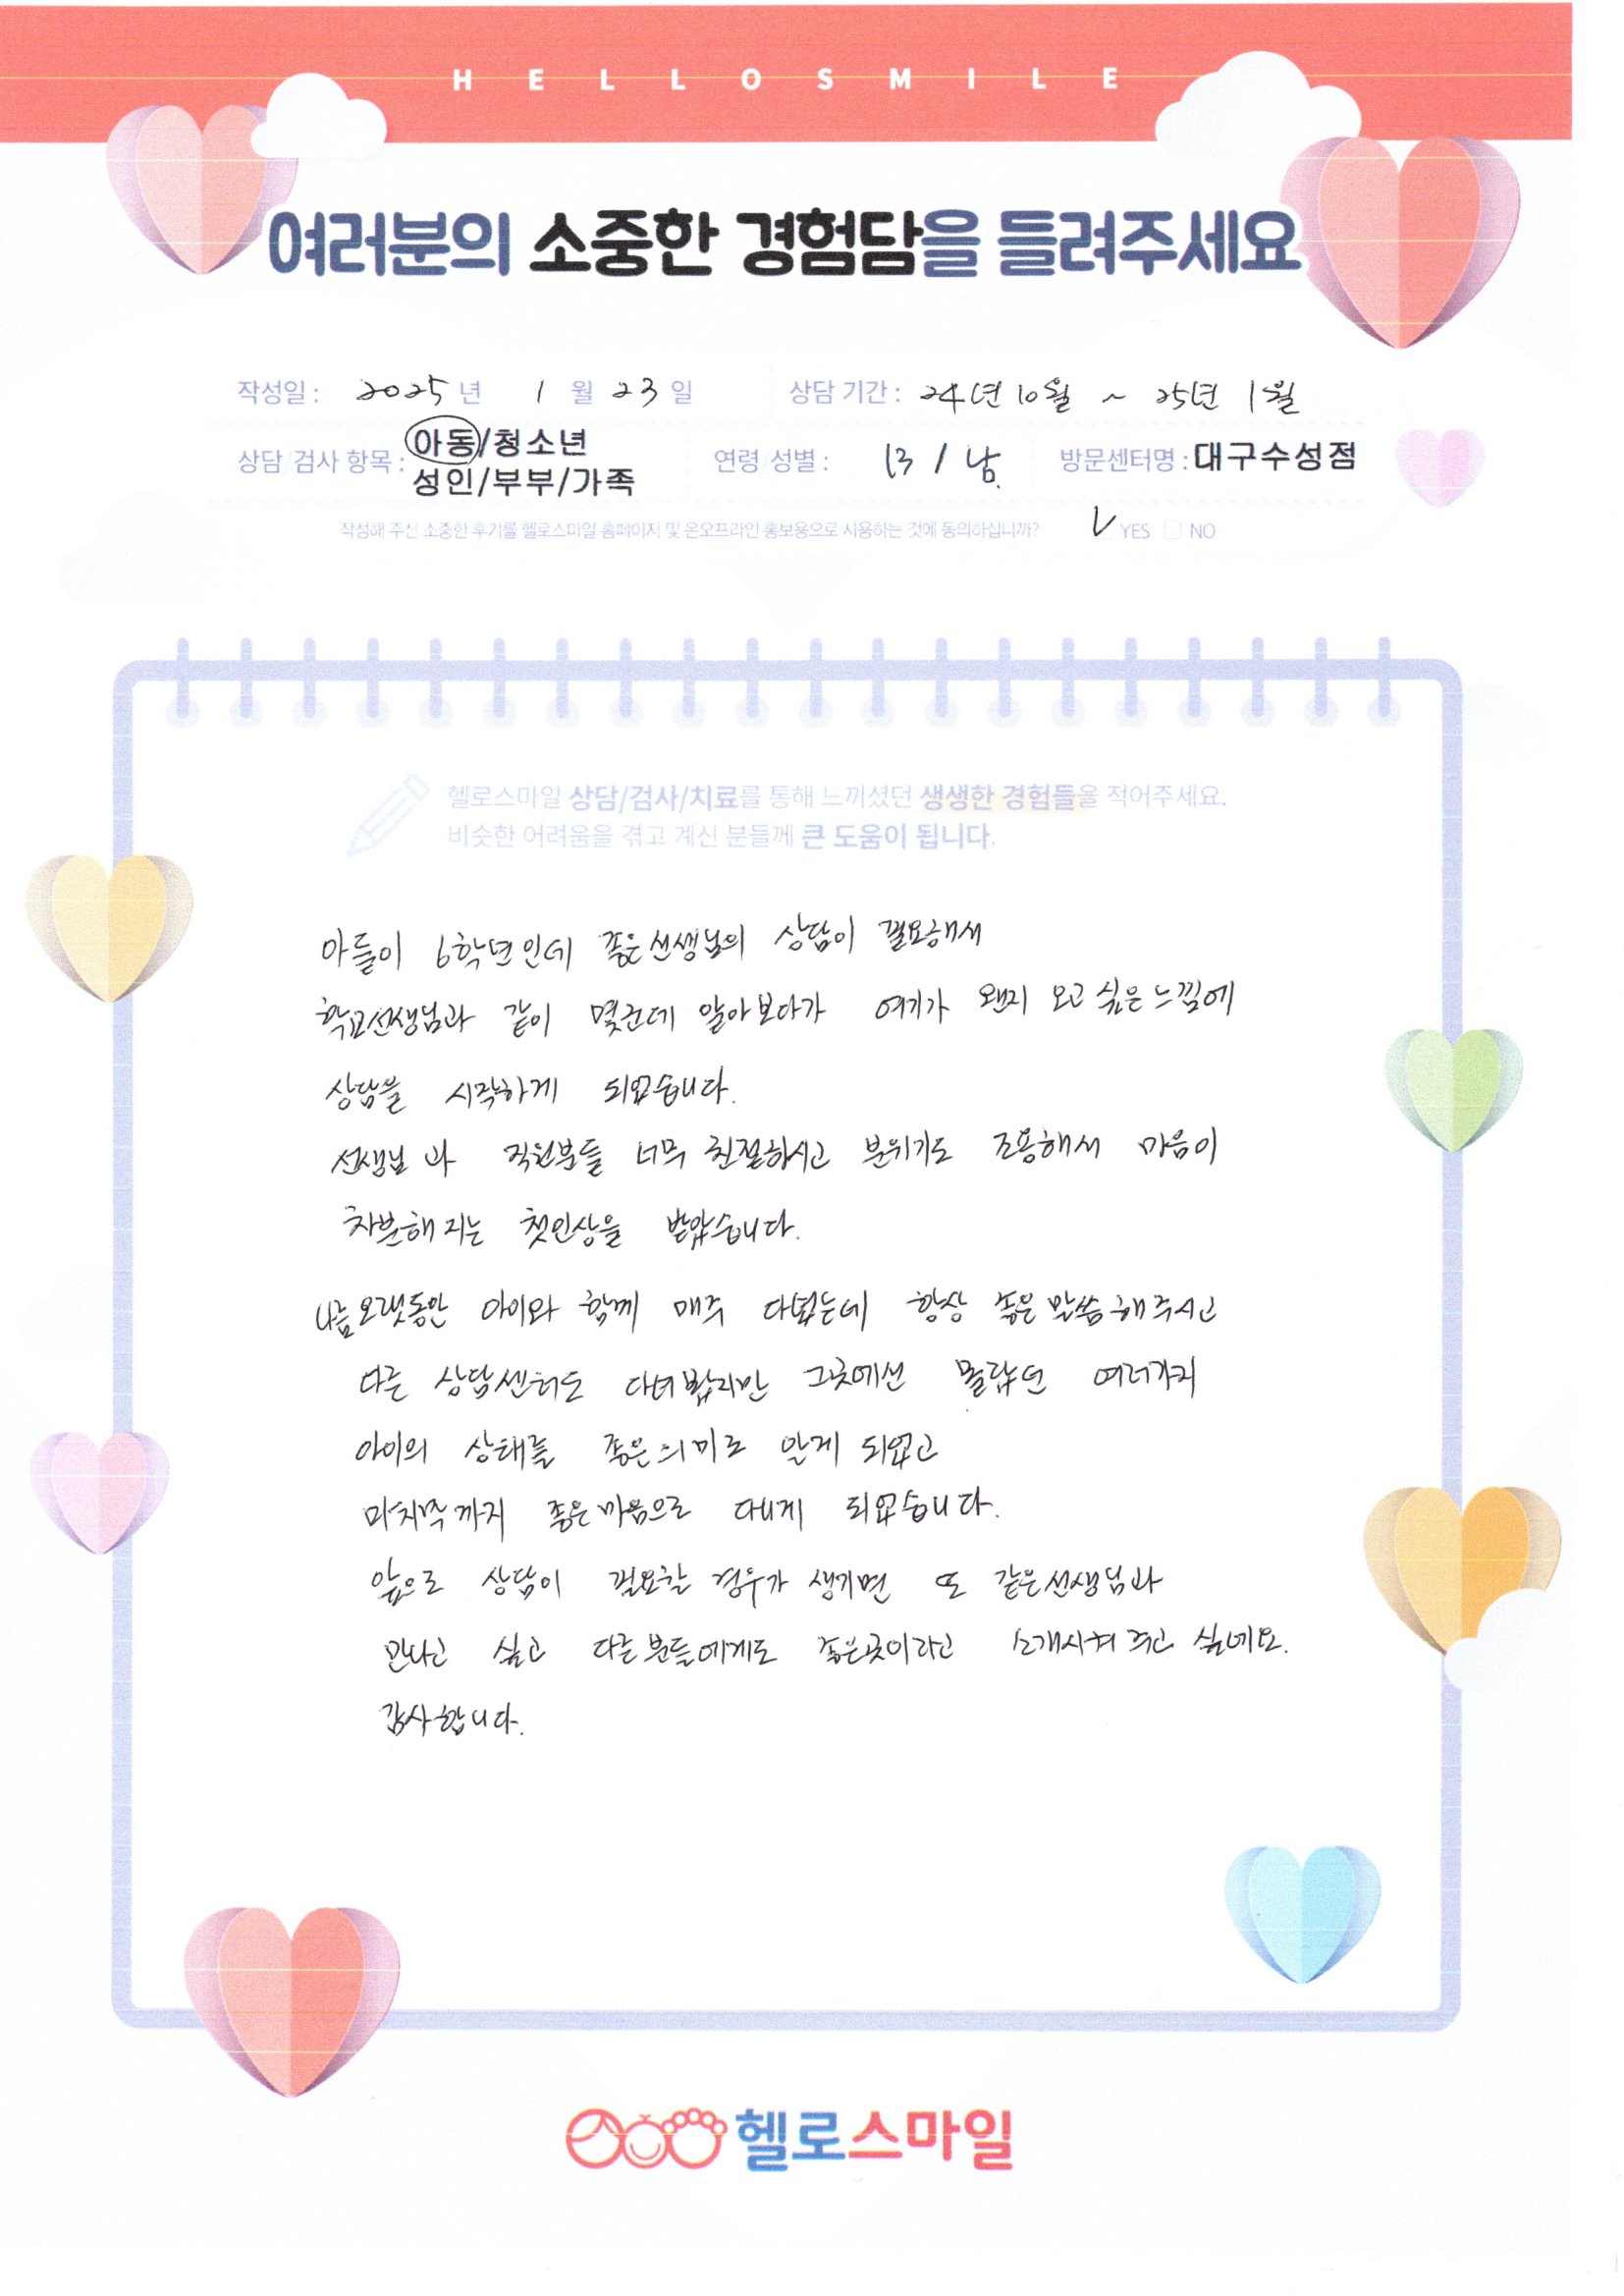 HELLOSMILE
여러분의 소중한 경험담을 들려주세요
작성일 : 2025 년 1 월 23 일 상담 기간 : 24년 10월 ~ 25년 1월
상담/검사 항목 : 아동/청소년
성인/부부/가족
연령/성별 : 13 / 남. 방문센터명 : 대구수성점
작성해 주신 소중한 후기를 헬로스마일 홈페이지 및 온오프라인 홍보용으로 사용하는 것에 동의하십니까? YES NO
헬로스마일 상담/검사/치료를 통해 느끼셨던 생생한 경험들을 적어주세요.
비슷한 어려움을 겪고 계신 분들께 큰 도움이 됩니다.
아들이 6학년인데 좋은선생님의 상담이 필요해서
학교선생님과 같이 몇군데 알아보다가 여기가 왠지 오고싶은느낌에
상담을 시작하게 되었습니다.
선생님과 직원분들 너무 친절하시고 분위기도 조용해서 마음이
차분해지는 첫인상을 받았습니다.
나름오랫동안 아이와 함께 매주 다녔는데 항상 좋은말씀해주시고
다른 상담센터도 다녀봤지만 그곳에선 몰랐던 여러가지
아이의 상태를 좋은의미로 알게 되었고
마지막까지 좋은마음으로 다니게 되었습니다.
앞으로 상담이 필요할 경우가 생기면 또 같은선생님과
만나고 싶고 다른분들에게도 좋은곳이라고 소개시켜주고 싶네요.
감사합니다.
헬로스마일